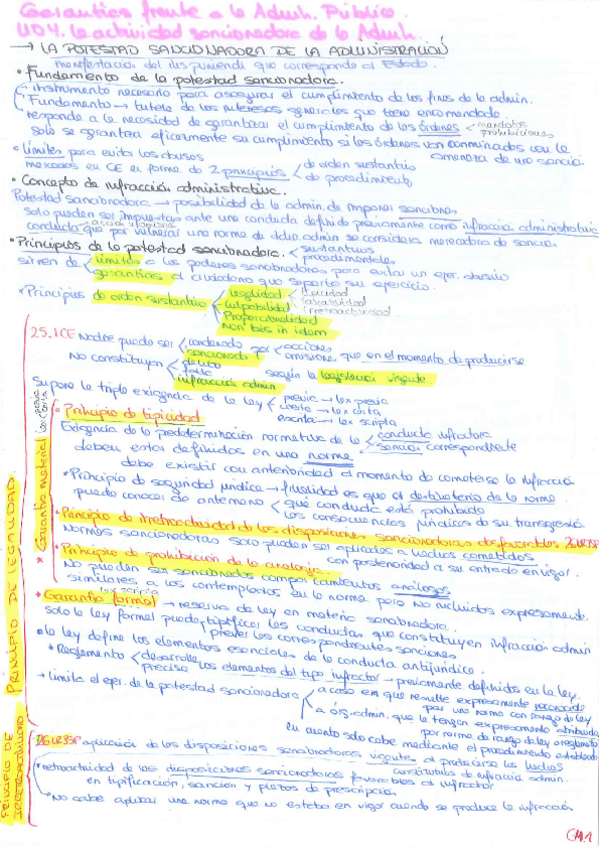 Garantías frente a la Admon. Pública.
UD4. La actividad sancionadora de la Admon.
→ LA POTESTAD SANCIONADORA DE LA ADMINISTRACIÓN
manifestación del ius puniendi que corresponde al Estado.
• Fundamento de la potestad sancionadora.
instrumento necesario para asegurar el cumplimiento de los fines de la admin.
Fundamento → tutela de los intereses generales que tiene encomendado.
responde a la necesidad de garantizar el cumplimiento de las órdenes < mandatos prohibiciones
solo se garantiza eficazmente su cumplimiento si las órdenes van conminadas con la amenaza de una sanción
• Límites para evitar los abusos
marcados en CE en forma de 2 principios < de orden sustantivo
de procedimiento
• Concepto de infracción administrativa.
Potestad sancionadora → posibilidad de la admin. de imponer sanciones
solo pueden ser impuestas ante una conducta definida previamente como infracción administrativa
conducta que por vulnerar una norma de dcho. admin se considera merecedora de sanción.
• Principios de la potestad sancionadora. < sustantivos
procedimentales
sirven de < límites a los poderes sancionadores para evitar un ejer. abusivo
garantías al ciudadano que soporta su ejercicio.
• Principios de orden sustantivo < legalidad < tipicidad
culpabilidad
irretroactividad
Proporcionalidad
Non bis in idem
25.1CE Nadie puede ser < condenado por < acciones
sancionado omisiones que en el momento de producirse
No constituyan < delito
falta
infracción admin según la legislación vigente
Supone la triple exigencia de la ley < previa → lex previa
cierta → lex certa
escrita → lex scripta
• Principio de tipicidad
Exigencia de la predeterminación normativa de la < conducta infractora
sanción correspondiente
deben estar definidos en una norma
debe existir con anterioridad al momento de cometerse la infracción
• Principio de seguridad jurídica → finalidad es que el destinatario de la norma
pueda conocer de antemano < qué conducta está prohibida
las consecuencias jurídicas de su transgresión.
• Principio de irretroactividad de las disposiciones sancionadoras desfavorables
Normas sancionadoras solo pueden ser aplicadas a hechos cometidos
con posterioridad a su entrada en vigor.
• Principio de prohibición de la analogía
No pueden ser sancionados comportamientos análogos
similares a los contemplados en la norma pero no incluidos expresamente.
lex scripta
* Garantía formal → reserva de ley en materia sancionadora.
solo la ley formal puede < tipificar las conductas que constituyen infracción admin
prever las correspondientes sanciones
• la ley define los elementos esenciales de la conducta antijurídica.
• Reglamento < desarrolla
precisa los elementos del tipo infractor → previamente definidos en la ley.
→ limita el ejer. de la potestad sancionadora < a caso en que resulte expresamente reconocida
por una norma con rango de ley
a órg. admin. que la tengan expresamente atribuida
por norma de rango de ley o reglamento
en cuanto solo cabe mediante el procedimiento establecido
* Garantía material
PRINCIPIO DE LEGALIDAD.
aplicación de las disposiciones sancionadoras vigentes al producirse los hechos
constitutivos de infracción admin.
• retroactividad de las disposiciones sancionadoras favorables al infractor
en tipificación, sanción y plazos de prescripción
No cabe aplicar una norma que no estaba en vigor cuando se produce la infracción
PRINCIPIO DE IRRETROACTIVIDAD